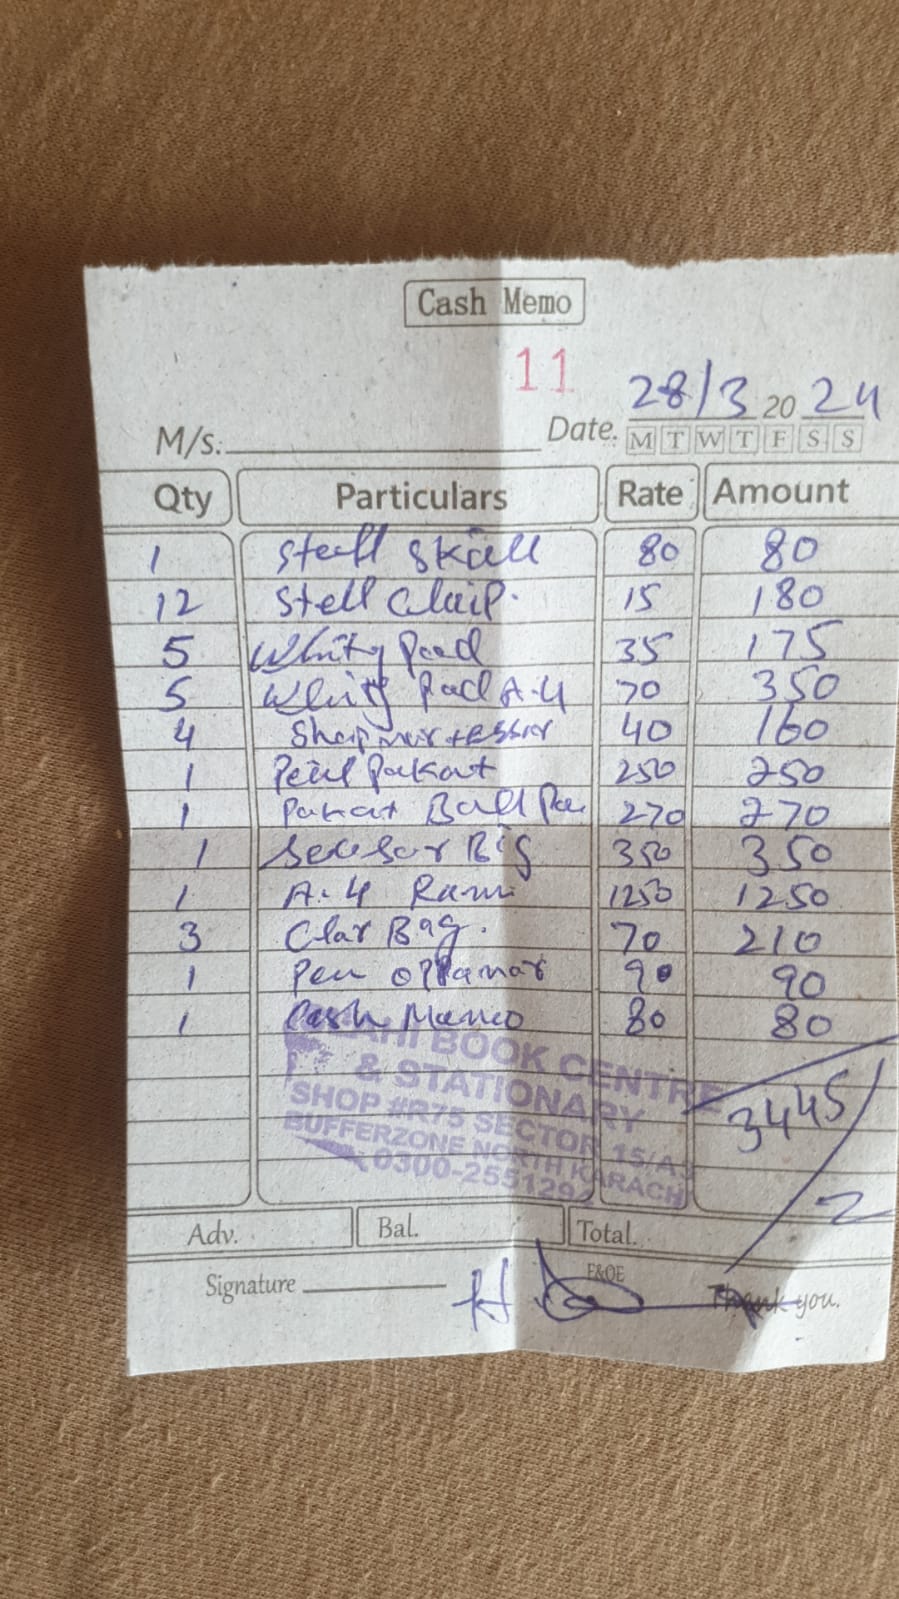 Cash Memo
11
M/s. Date. 28/3 20 24
M T W T F S S
Qty Particulars Rate Amount
1 80 80
12 Stell Claip. 15 180
5 Whity Pad 35 175
5 Whity Pad A-4 70 350
4 40 160
1 Pakat 250 250
1 Pakat Ball Pen 270 270
1 Big 350 350
1 A-4 Ram 1250 1250
3 Clar Bag. 70 210
1 Pen 90 90
1 Cash Memo 80 80
3445
BOOK CENTRE
& STATIONARY
SHOP #R75 SECTOR 15/A
BUFFERZONE NORTH KARACHI
0300-2551292
Adv. Bal. Total.
Signature E&OE Thank you.